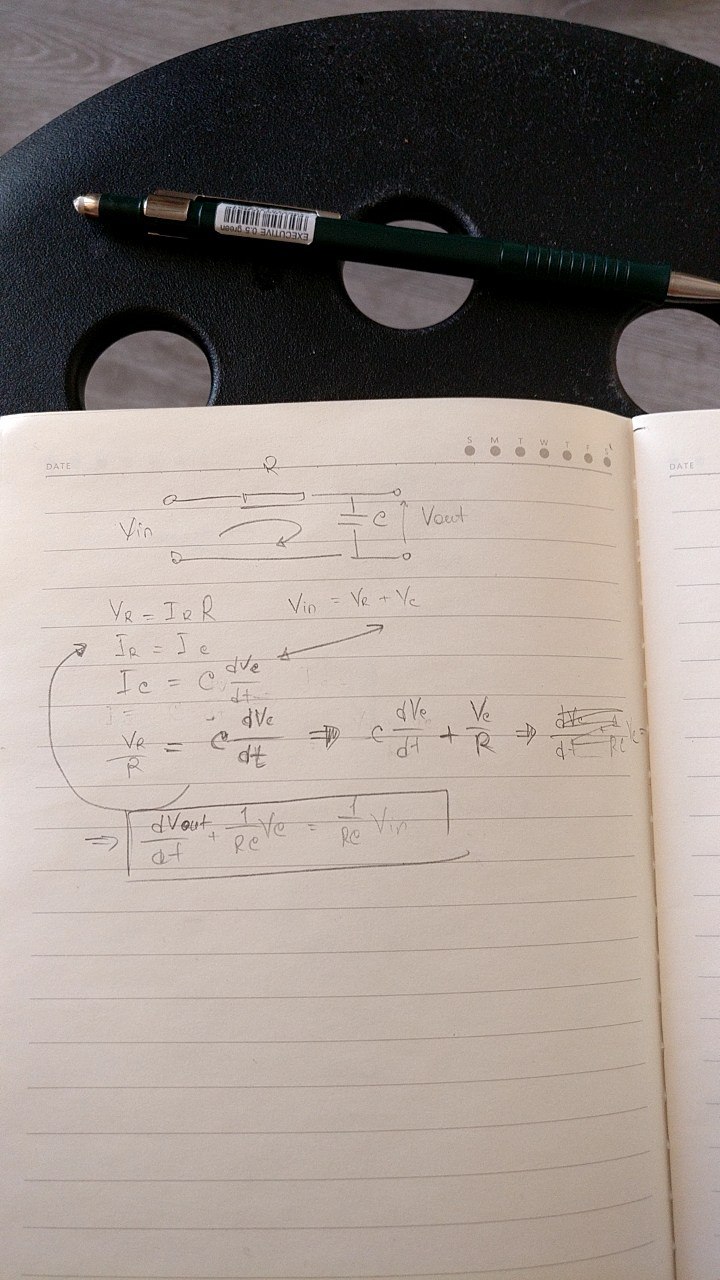 EXECUTIVE 0.5 green
S M T W T F S
DATE
DATE
R
Vin
C
Vout
VR = IR R
Vin = VR + Vc
IR = Ic
Ic = C dVc/dt
VR/R = C dVc/dt ⇒ C dVc/dt + Vc/R ⇒
⇒ dVout/dt + 1/RC Vc = 1/RC Vin